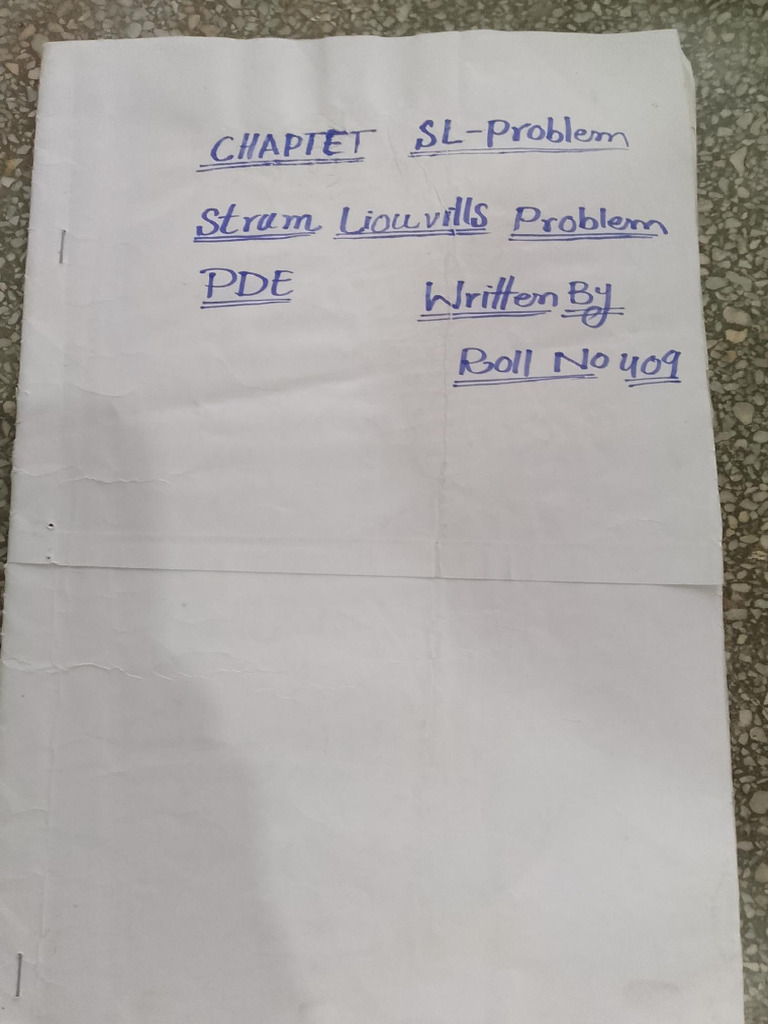 CHAPTET SL-Problem
Stram Liouvills Problem
PDE Written By
Roll No 409